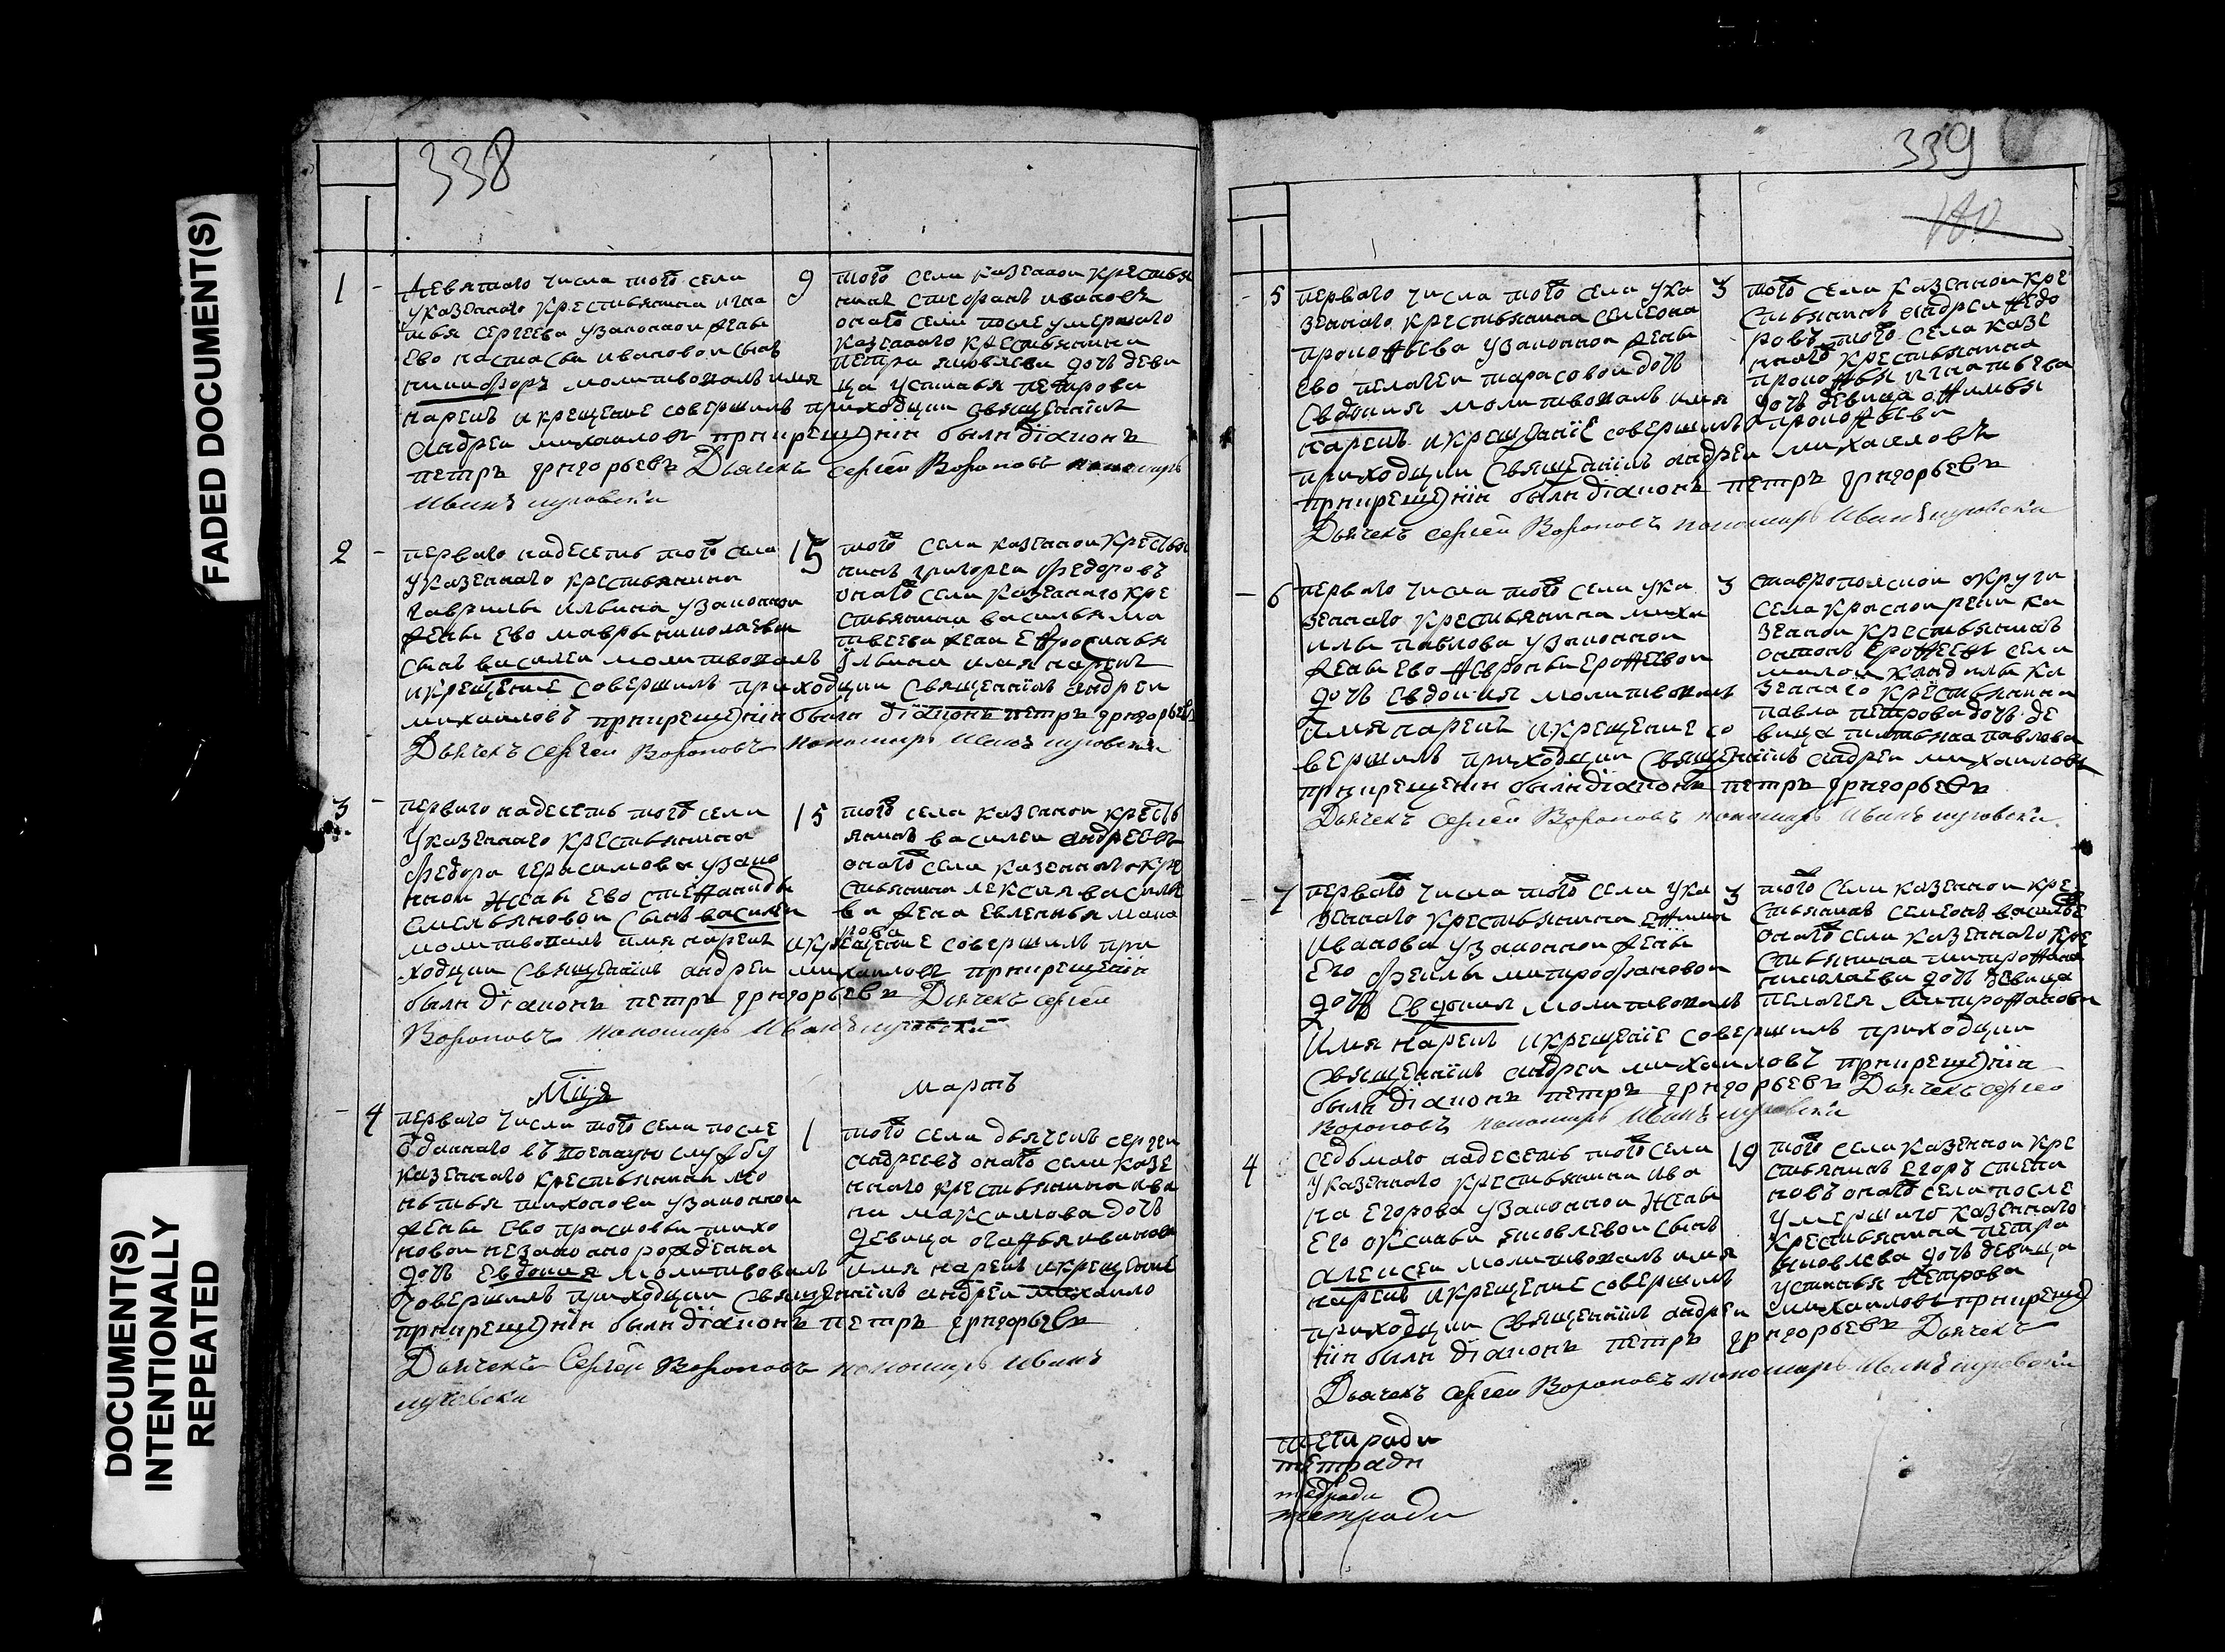 FADED DOCUMENT(S)
DOCUMENT(S)
INTENTIONALLY
REPEATED
338
1
Девятого числа того села
у казенного крестьянина игна
тья сергеева узаконной жены
ево настасьи ивановой сынъ
никифоръ молитвовалъ имя
нарекъ и крещение совершилъ приходцки священникъ
андреи михаиловъ при крещении были диаконъ
петръ григорьевъ Дьячекъ сергеи Вороновъ пономарь
Иванъ
9
того села казеннои крестья
нинъ стефанъ ивановъ
оного села после умершаго
казенного крестьянина
петра яковлева дочь деви
ца устинья петрова
2
первого надесеть того села
у казенного крестьянина
гаврилы ильина узаконнои
жены ево мавры николаевои
сынъ василеи молитвовалъ
и крещение совершилъ приходцки священникъ андреи
михаиловъ при крещении были диаконъ петръ григорьевъ
Дьячекъ сергеи Вороновъ пономарь Иванъ
15
того села казеннои крестья
нинъ григореи федоровъ
оного села казенного кре
стьянина василья ма
твеева жена ефросинья
ильина имя нарекъ
3
первого надесеть того села
у казенного крестьянина
федора герасимова узако
ннои жены ево стефаниды
емельяновои сынъ василеи
молитвовалъ имя нарекъ и крещение совершилъ при
ходцки священникъ андреи михаиловъ при крещении
были диаконъ петръ григорьевъ Дьячекъ сергеи
Вороновъ пономарь Иванъ
15
того села казеннои кресть
янинъ василеи андреевъ
оного села казенного кре
стьянина лексея василь
ва жена евленья
Мца мартъ
4
первого числа того села после
отданного въ военную службу
казенного крестьянина
тихонова узаконнои
жены ево прасковьи тихо
новои незаконорожденна
дочь Евдокия молитвовалъ имя нарекъ и крещение
совершилъ приходцки священникъ андреи михаило
при крещении были диаконъ петръ григорьевъ
Дьячекъ Сергеи Вороновъ пономарь Иванъ
1
того села дьячекъ сергеи
андреевъ оного села казе
нного крестьянина ива
на максимова дочь
девица агафья иванова
339
5
первого числа того села у ка
зенного крестьянина семиона
прокофьева узаконнои жены
ево пелагеи тарасовои дочь
Евдокия молитвовалъ имя
нарекъ и крещение совершилъ
приходцки священникъ андреи михаиловъ
при крещении были диаконъ петръ григорьевъ
Дьячекъ сергеи Вороновъ пономарь Иванъ
3
того села казеннои кре
стьянинъ андреи федо
ровъ того села казе
нного крестьянина
прокофья игнатьева
дочь девица офимья
прокофьева
6
первого числа того села у ка
зенного крестьянина миха
илы павлова узаконнои
жены ево февроньи ерофеевои
дочь Евдокия молитвовалъ
имя нарекъ и крещение со
вершилъ приходцки священникъ андреи михаиловъ
при крещении были диаконъ петръ григорьевъ
Дьячекъ Сергеи Вороновъ пономарь Иванъ
3
ставропольскои округи
села краснои реки ка
зеннои крестьянинъ
антонъ ерофеевъ села
малои кандалы ка
зенного крестьянина
павла петрова дочь де
вица татьяна павлова
7
первого числа того села у ка
зенного крестьянина ефима
иванова узаконнои жены
его феклы митрофановои
дочь Евдокия молитвовалъ
имя нарекъ и крещение совершилъ приходцки
священникъ андреи михаиловъ при крещении
были диаконъ петръ григорьевъ Дьячекъ сергеи
Вороновъ пономарь Иванъ
3
того села казеннои кре
стьянинъ семионъ василье
оного села казенного кре
стьянина митрофана
николаева дочь девица
пелагея митрофанова
4
седьмого надесеть того села
у казенного крестьянина ива
на егорова узаконнои жены
его аксиньи яковлевои сынъ
алексеи молитвовалъ имя
нарекъ и крещение совершилъ
приходцки священникъ андреи михаиловъ при креще
нии были диаконъ петръ григорьевъ Дьячекъ
Дьячекъ сергеи Вороновъ пономарь Иванъ
19
того села казеннои кре
стьянинъ егоръ степа
новъ оного села после
умершаго казенного
крестьянина петра
яковлева дочь девица
устинья петрова
тетради
тетради
тетради
тетради